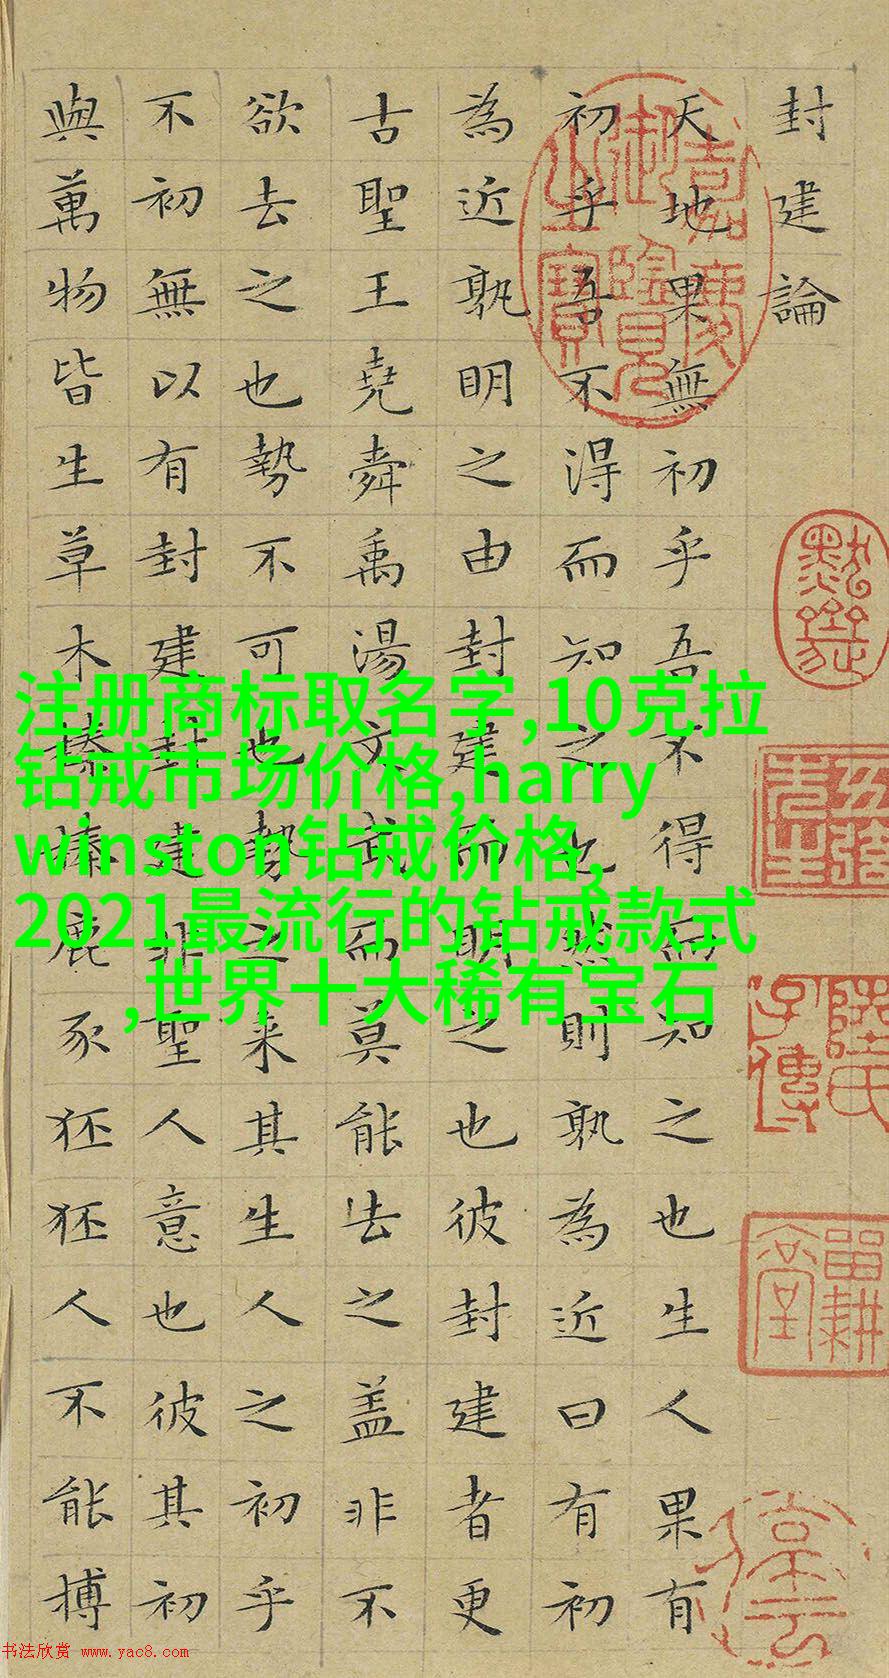 封建論
天地果無初乎吾不得而知之也生人果有
初乎吾不得而知之也然則孰為近曰有初
為近孰明之由封建而明之也彼封建者更
古聖王堯舜禹湯文武而莫能去之盖非不
欲去之也勢不可也勢之来其生人之初乎
不初無以有封建封建非聖人意也彼其初
與萬物皆生草木榛榛鹿豕狉狉人不能搏
嘉慶御覽之寶
陸氏子傳
留耕堂
注册商标取名字,10克拉
钻戒市场价格,harry
winston钻戒价格,
2021最流行的钻戒款式
,世界十大稀有宝石
书法欣赏 www.yac8.com